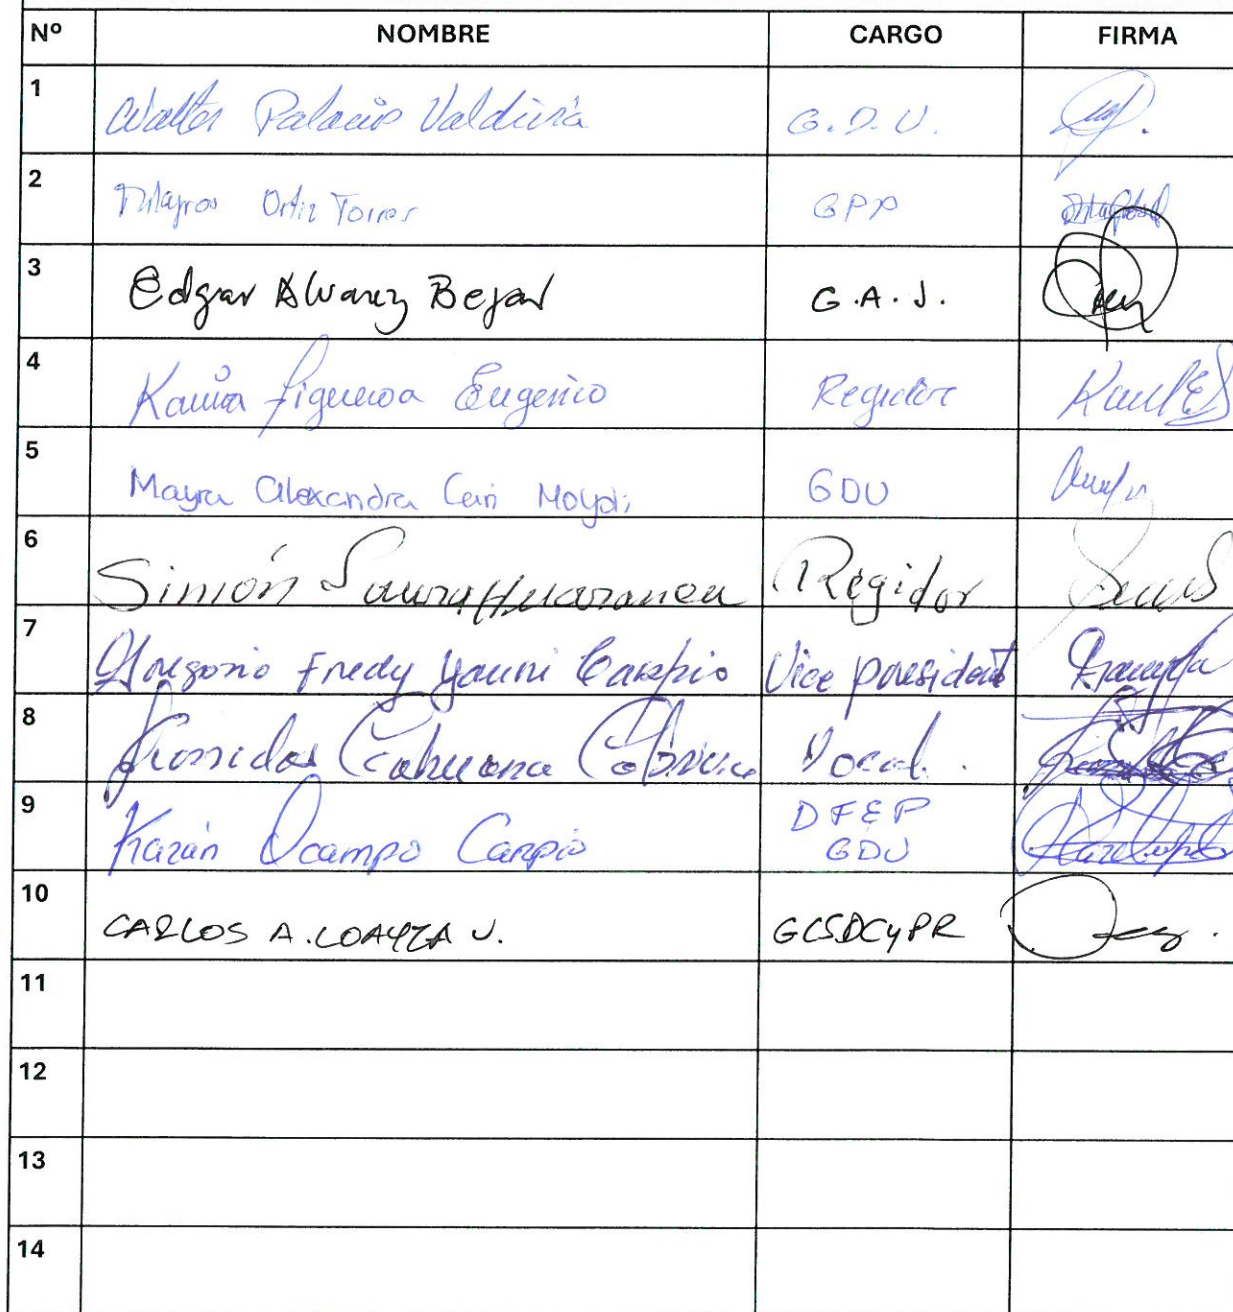 Nº NOMBRE CARGO FIRMA
1 Walter Palacio Valdivia G.D.U.
2 Milagros Ortiz Torres GPP
3 Edgar Alvarez Bejar G.A.J.
4 Karina Figueroa Eugenio Regidor
5 Mayra Alexandra Cari GDU
6 Simón Regidor
7 Gregorio Fredy Yauri Carpio Vice president
8 Cahuana Vocal.
9 Karán Ocampo Carpio DFEP
GDU
10 CARLOS A. LOAYZA V. GCSDCyPR
11
12
13
14